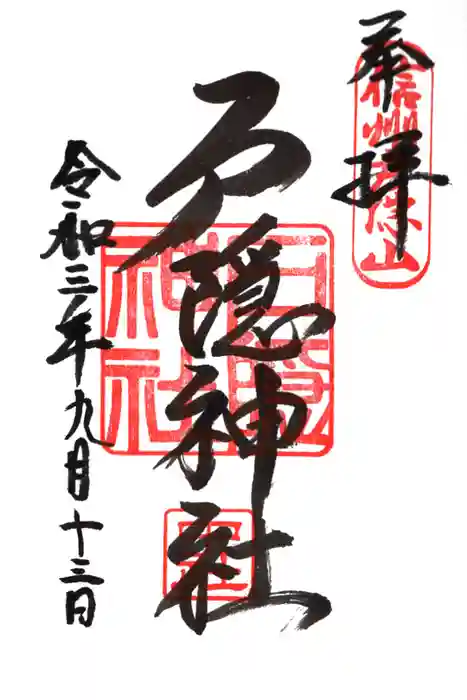 奉拝
信州戸隠山
戸隠神社
戸隠神社
令和三年九月十三日